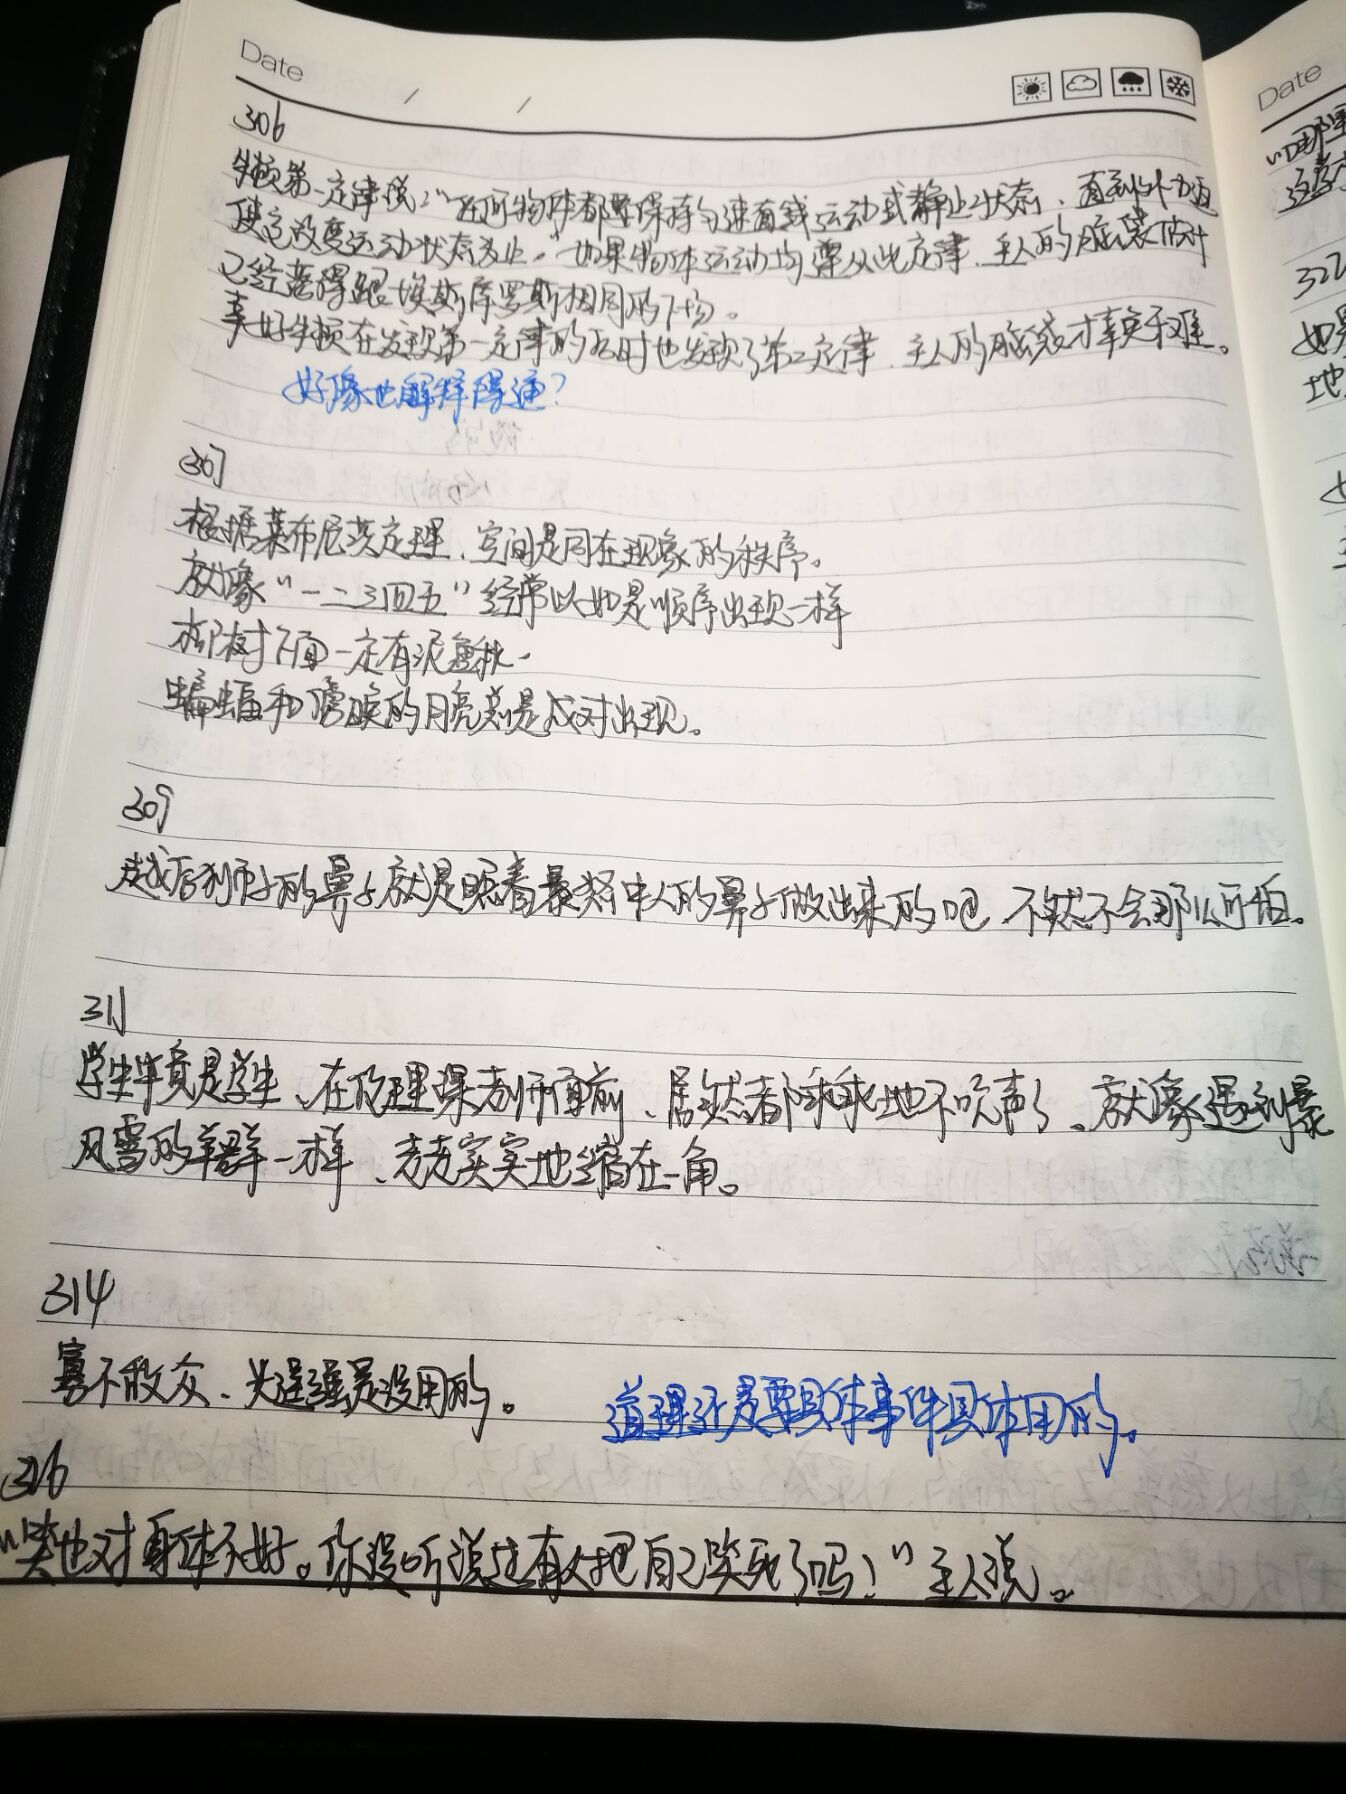 Date / /
306
牛顿第一定律说:“任何物体都要保持匀速直线运动或静止状态,直到外力迫
使它改变运动状态为止。”如果物体运动均遵从此定律,主人的脑袋估计
已经落得跟埃斯库罗斯相同的下场。
幸好牛顿在发现第一定律的同时也发现了第二定律,主人的脑袋才幸免于难。
好像也解释得通?
307
根据莱布尼茨定理,空间是同在现象的秩序。
就像“一二三四五”经常以如是顺序出现一样
柳树下面一定有泥鳅。
蝙蝠和傍晚的月亮总是成对出现。
309
越后狮子的鼻子就是照着暴怒中人的鼻子做出来的吧,不然不会那么可怕。
311
学生毕竟是学生,在伦理课老师面前,居然都乖乖地不吱声了。就像遇到暴
风雪的羊群一样,老老实实地缩在一角。
314
寡不敌众,光逞强是没用的。
道理还是要具体事件具体用的。
326
“笑也对身体不好。你没听说过有人把自己笑死了吗?”主人说。
Date
“哪里
322
如果
地